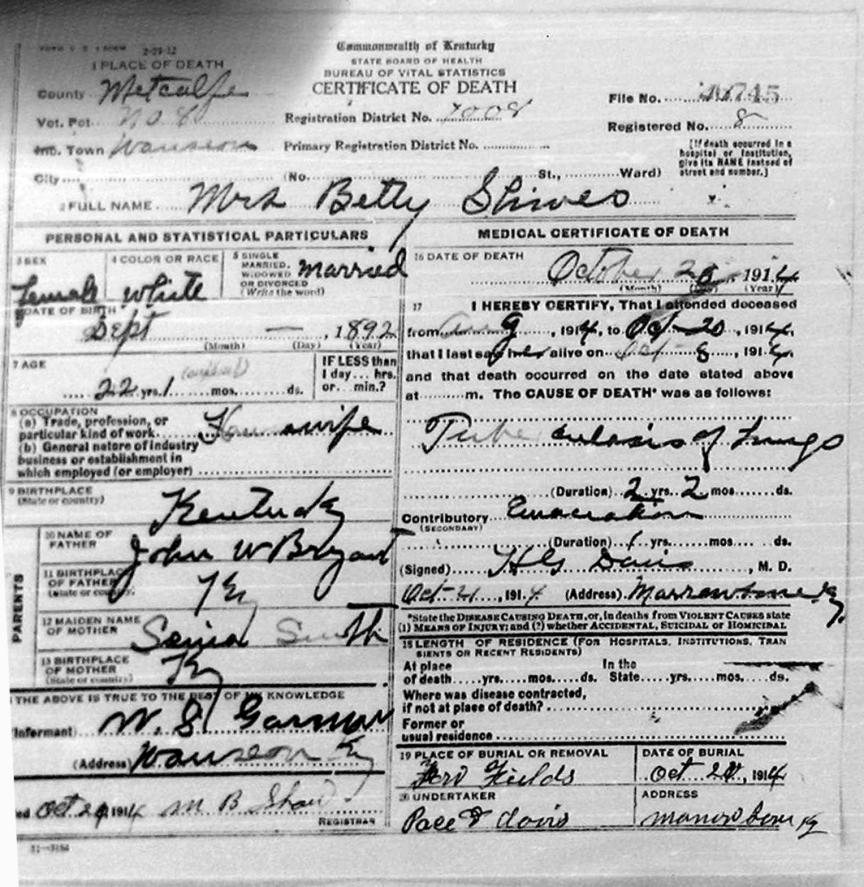 Commonwealth of Kentucky
STATE BOARD OF HEALTH
BUREAU OF VITAL STATISTICS
CERTIFICATE OF DEATH
1 PLACE OF DEATH
County Metcalfe
Vot. Pct
Inc. Town
City
Registration District No. 7008
Primary Registration District No.
(No. St., Ward)
File No.
Registered No. 8
[If death occurred in a
hospital or institution,
give its NAME instead of
street and number.]
2 FULL NAME Mrs Betty Shives
PERSONAL AND STATISTICAL PARTICULARS
3 SEX
female
4 COLOR OR RACE
White
5 SINGLE
MARRIED,
WIDOWED
OR DIVORCED
(Write the word)
Married
DATE OF BIRTH
Sept — , 1892
(Month) (Day) (Year)
7 AGE
22 yrs. 1 mos. ds.
IF LESS than
1 day... hrs.
or... min.?
8 OCCUPATION
(a) Trade, profession, or
particular kind of work Housewife
(b) General nature of industry
business or establishment in
which employed (or employer)
9 BIRTHPLACE
(State or country)
Kentucky
PARENTS
10 NAME OF
FATHER
John W Bryant
11 BIRTHPLACE
OF FATHER
(State or country)
Ky
12 MAIDEN NAME
OF MOTHER
Smith
13 BIRTHPLACE
OF MOTHER
(State or country)
Ky
THE ABOVE IS TRUE TO THE BEST OF MY KNOWLEDGE
Informant)
(Address) Ky
1914 M B Shaw
REGISTRAR
MEDICAL CERTIFICATE OF DEATH
16 DATE OF DEATH
October 20, 1914
(Month) (Day) (Year)
17 I HEREBY CERTIFY, That I attended deceased
from 1914, to Oct-20, 1914,
that I last saw her alive on Oct-8, 1914,
and that death occurred on the date stated above
at m. The CAUSE OF DEATH* was as follows:
Tuberculosis of Lungs
(Duration) 2 yrs. 2 mos. ds.
Contributory Emaciation
(SECONDARY)
(Duration) 1 yrs. mos. ds.
(Signed) Davis, M. D.
Oct-21, 1914 (Address)
*State the DISEASE CAUSING DEATH, or, in deaths from VIOLENT CAUSES state
(1) MEANS OF INJURY; and (2) whether ACCIDENTAL, SUICIDAL OR HOMICIDAL
18 LENGTH OF RESIDENCE (FOR HOSPITALS, INSTITUTIONS, TRAN
SIENTS OR RECENT RESIDENTS)
At place In the
of death yrs. mos. ds. State yrs. mos. ds.
Where was disease contracted,
if not at place of death?
Former or
usual residence
19 PLACE OF BURIAL OR REMOVAL
Fields
DATE OF BURIAL
Oct 1914
20 UNDERTAKER
Pace & Davis
ADDRESS